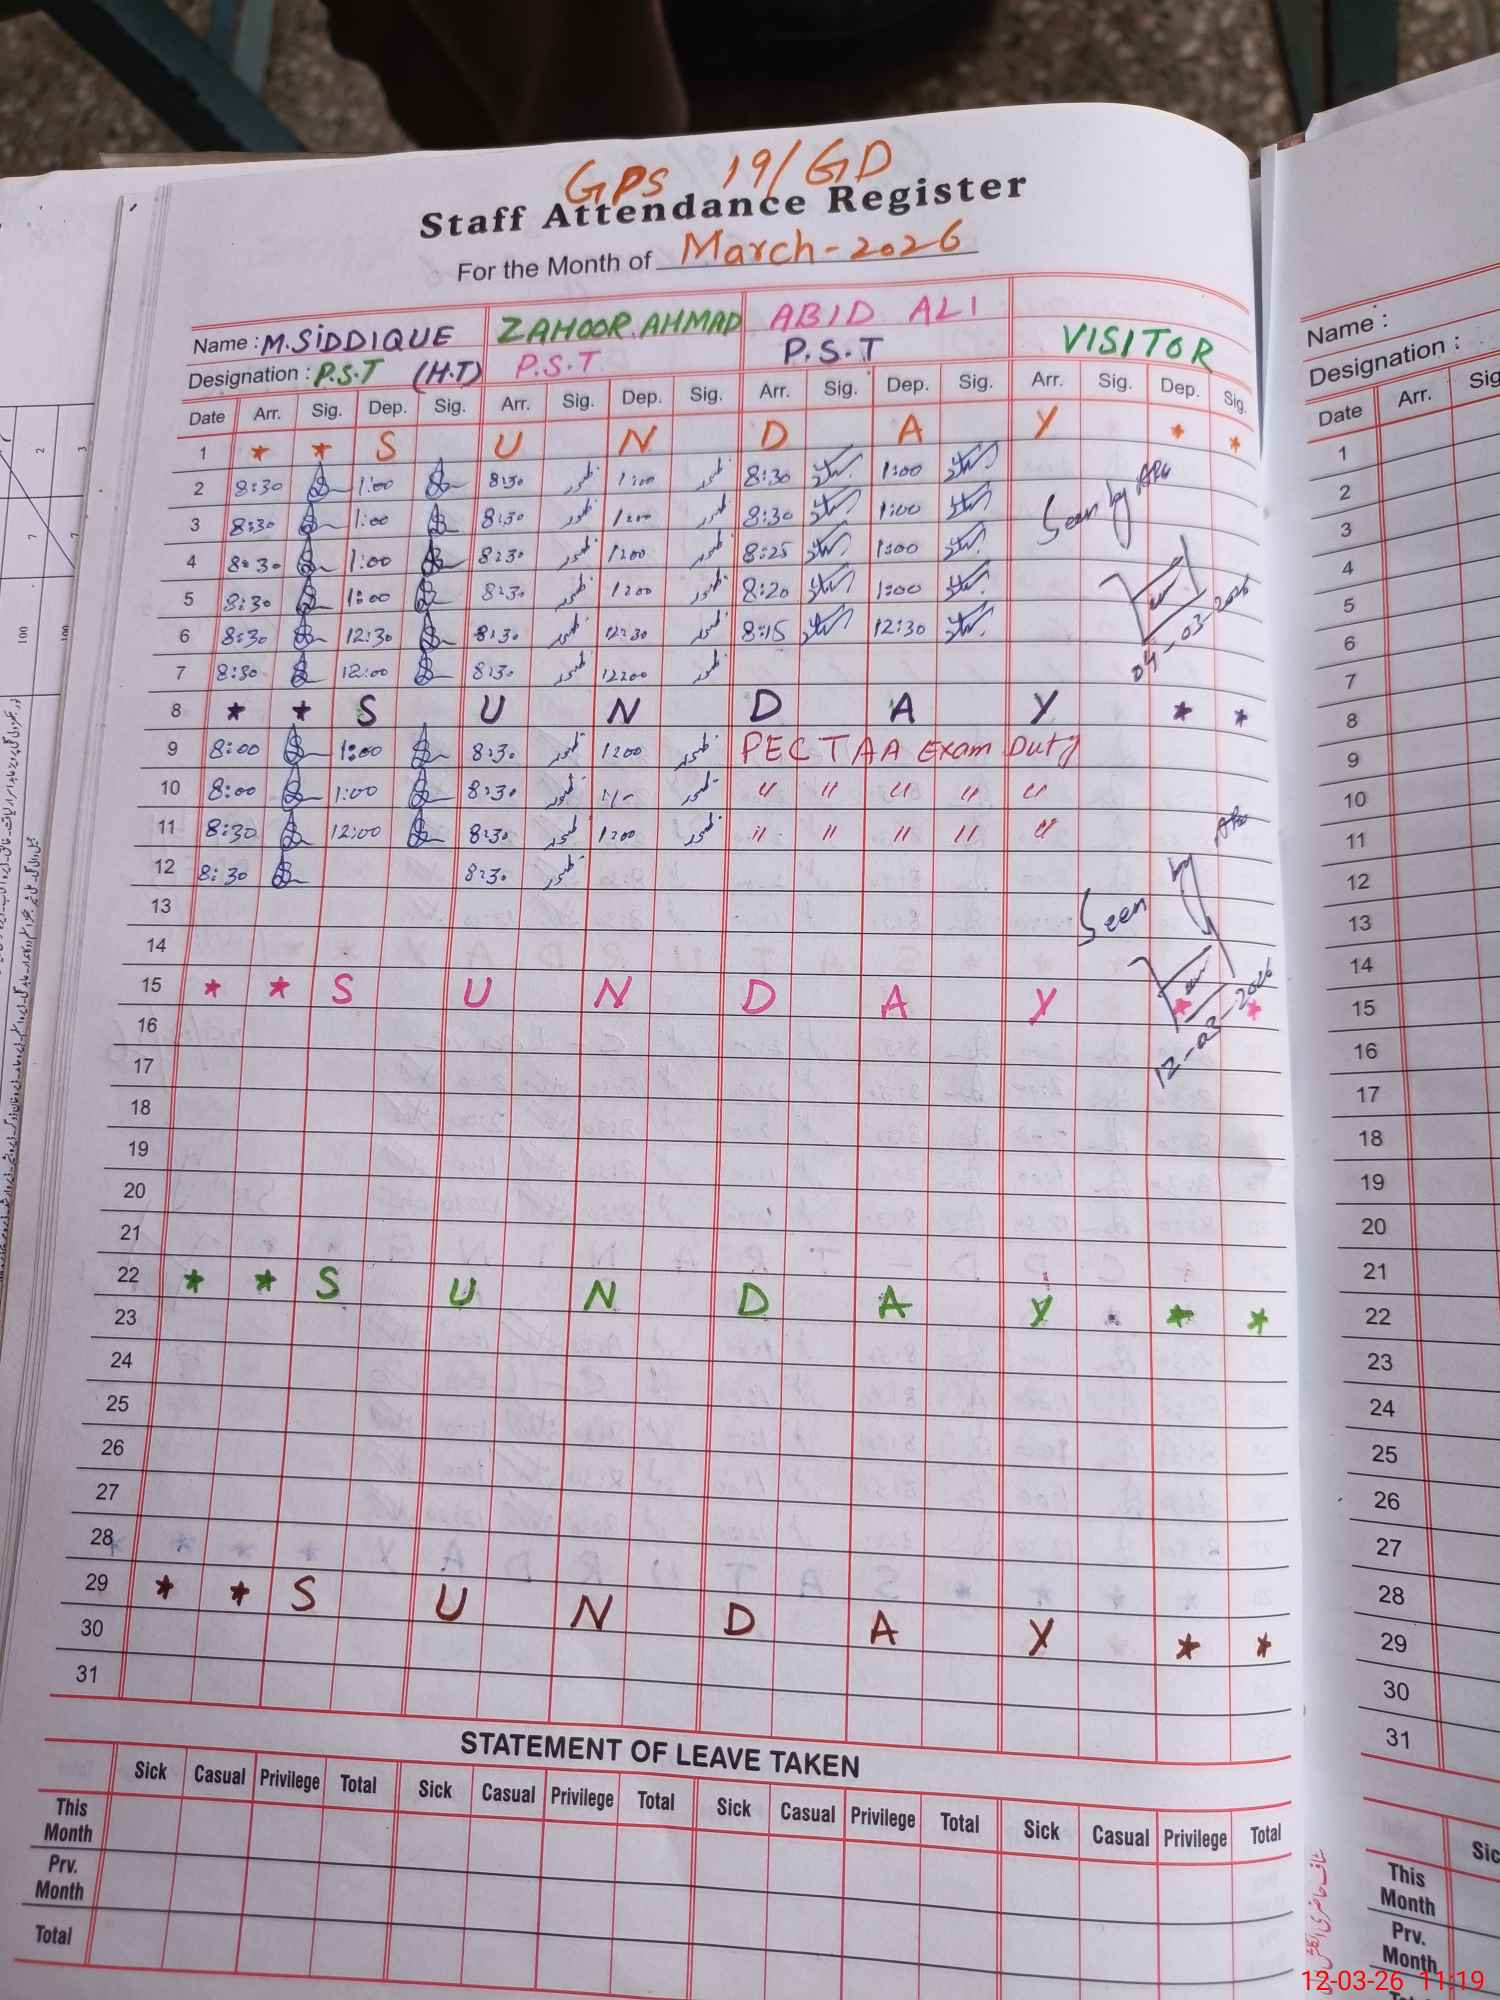 GPS 19/GD
Staff Attendance Register
For the Month of March-2026
Name : M.SiDDIQUE ZAHOOR.AHMAD ABID ALI VISITOR
Designation : P.S.T (H.T) P.S.T P.S.T
Date Arr. Sig. Dep. Sig. Arr. Sig. Dep. Sig. Arr. Sig. Dep. Sig. Arr. Sig. Dep. Sig.
1 * * S U N D A Y * *
2 8:30 1:00 8:30 ظہور 1:00 ظہور 8:30 1:00
3 8:30 1:00 8:30 ظہور 1:00 ظہور 8:30 1:00
4 8:30 1:00 8:30 ظہور 1:00 ظہور 8:25 1:00
5 8:30 1:00 8:30 ظہور 1:00 ظہور 8:20 1:00
6 8:30 12:30 8:30 ظہور 12:30 ظہور 8:15 12:30
7 8:30 12:00 8:30 ظہور 12:00 ظہور
Seen by
04-03-2026
8 * * S U N D A Y * *
9 8:00 1:00 8:30 ظہور 1:00 ظہور PECTAA Exam Duty
10 8:00 1:00 8:30 ظہور 1/- ظہور " " " " "
11 8:30 12:00 8:30 ظہور 1:00 ظہور " " " " "
12 8:30 8:30 ظہور
13
14
Seen by
12-03-2026
15 * * S U N D A Y * *
16
17
18
19
20
21
22 * * S U N D A Y * *
23
24
25
26
27
28
29 * * S U N D A Y * *
30
31
STATEMENT OF LEAVE TAKEN
Sick Casual Privilege Total Sick Casual Privilege Total Sick Casual Privilege Total Sick Casual Privilege Total
This Month
Prv. Month
Total
Name :
Designation :
Date Arr.
1
2
3
4
5
6
7
8
9
10
11
12
13
14
15
16
17
18
19
20
21
22
23
24
25
26
27
28
29
30
31
This Month
Prv. Month
12-03-26 11:19